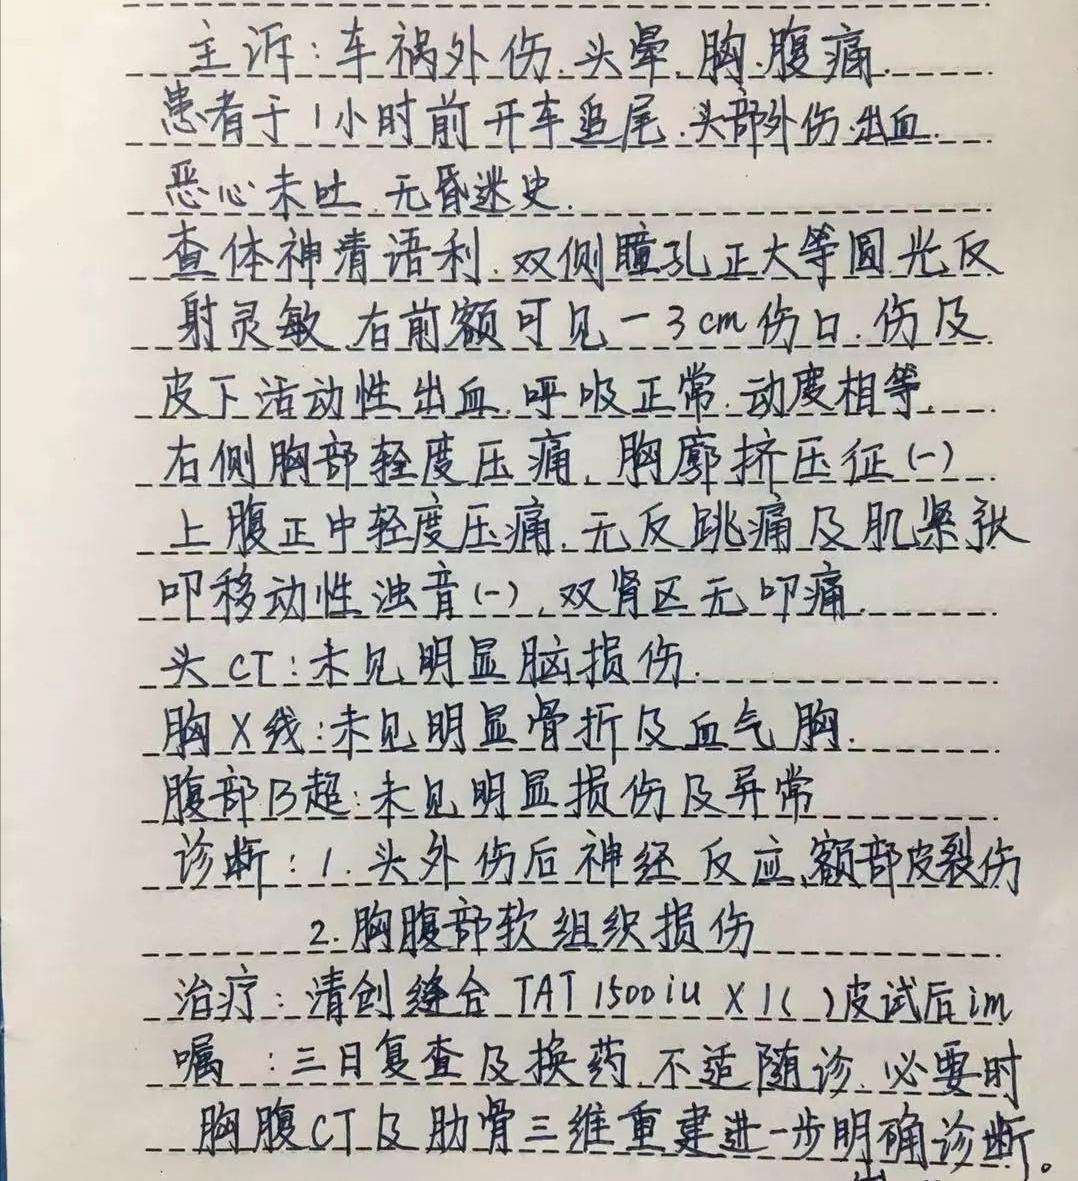 主诉:车祸外伤.头晕.胸.腹痛.
患者于1小时前开车追尾.头部外伤.出血.
恶心未吐.无昏迷史.
查体神清语利.双侧瞳孔正大等圆光反
射灵敏.右前额可见一3cm伤口.伤及
皮下活动性出血.呼吸正常.动度相等.
右侧胸部轻度压痛.胸廓挤压征(-)
上腹正中轻度压痛.无反跳痛及肌紧张
叩移动性浊音(-).双肾区无叩痛.
头CT:未见明显脑损伤.
胸X线:未见明显骨折及血气胸.
腹部B超:未见明显损伤及异常
诊断:1.头外伤后神经反应.额部皮裂伤
2.胸腹部软组织损伤
治疗:清创缝合TAT1500iu X1( )皮试后im
嘱:三日复查及换药.不适随诊.必要时
胸腹CT及肋骨三维重建进一步明确诊断。